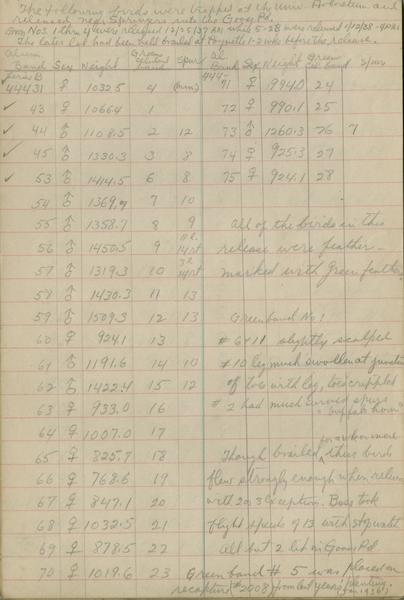 The following birds were trapped at the Univ. Arboretum and
released near Springers into the Goose Pd.
Nos. 1 thru 4 were released 12/25/37 AM while 5-28 were released 1/12/38 - 4 PM.
The later lot had been held brailed at Poynette 1-2 wks before the release.
Band Sex Weight Green band Spur
Series B
44431 ♀ 1032.5 4 (mm)
43 ♀ 1066.1 1
44 ♂ 1108.5 2 12
45 ♂ 1330.3 3 8
53 ♂ 1414.5 6 8
54 ♂ 1369.7 7 10
55 ♂ 1358.7 8 9
56 ♂ 1450.5 9 14 rt
57 ♂ 1319.3 10 14 rt
58 ♂ 1430.3 11 13
59 ♂ 1509.3 12 13
60 ♀ 924.1 13
61 ♂ 1191.6 14 10
62 ♂ 1422.4 15 12
63 ♀ 933.0 16
64 ♀ 1007.0 17
65 ♀ 825.7 18
66 ♀ 768.6 19
67 ♀ 847.1 20
68 ♀ 1032.5 21
69 ♀ 878.5 22
70 ♀ 1019.6 23
Al. Band Sex Weight Green band Spur
444-
71 ♀ 994.0 24
72 ♀ 990.1 25
73 ♂ 1260.3 26 7
74 ♀ 925.3 27
75 ♀ 924.1 28
All of the birds in this
release were feather-
marked with green feather
Green band No!
# 6 + 11 slightly scalped
# 10 leg much swollen at junction
of toe with leg, toes crippled
# 2 had much curved spurs
"buffalo horn"
Though brailed for week or more these birds
flew strongly enough when released
with 2 or 3 exception. Boss took
flight speeds of 13 with stopwatch
All but 2 lit in Goose Pd.
Green band # 5 was placed on
recapture #2008 from last year's planting